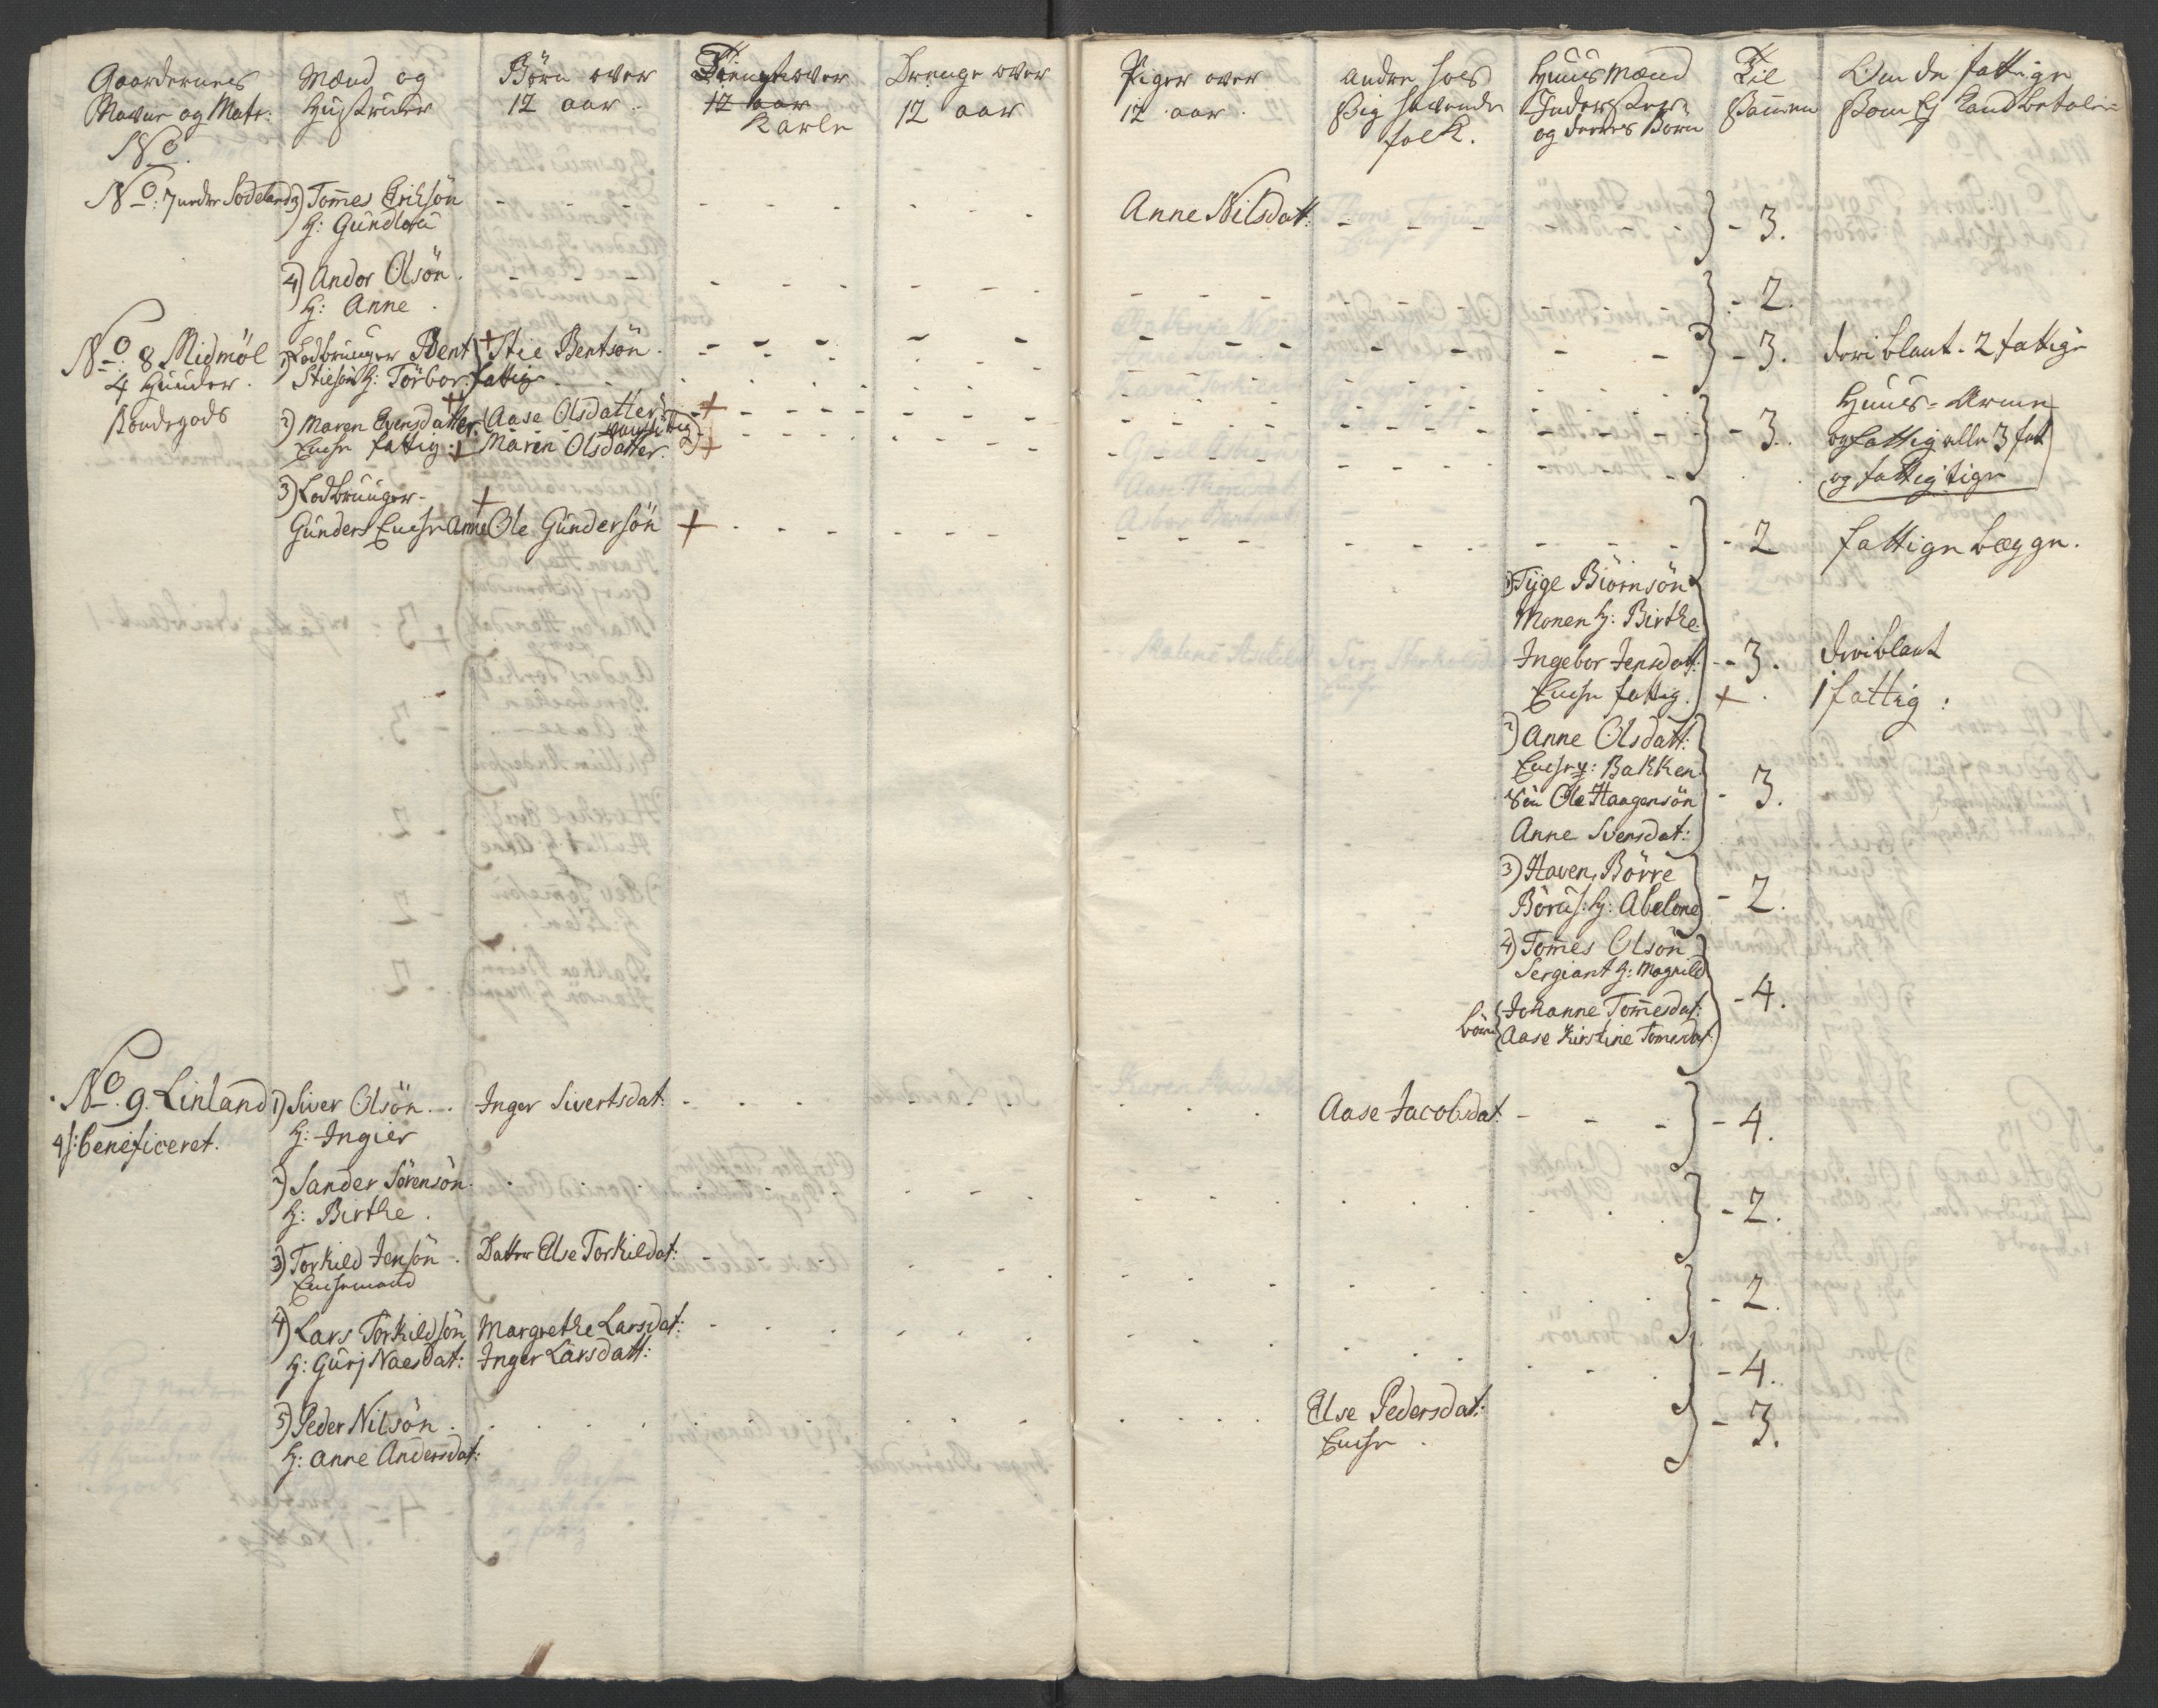 Gaardernes
Mænd og
Börn over
12 aar
Navne og Matr:
Hustruer
12 aar.
Karle
Drenge over
12 aar
Piger over
12 aar.
andre hos
sig havende
folk.
Huus Mænd
Inderster
og deres Börn
Til
Sammen
Om de fattige
som Ej kand betale
No
No: 7 under Sodeland 3) Tomes Erichsön
H: Gundloru
Anne Nilsdatt:
- 3.
4) Andor Olsön.
H: Anne.
- 2.
No: 8 Midmöl
4 Huuder.
Bondegods
1) Lodbruuger Bent
Stiesön H: Törbor: fattig
Stie Bentsön.
- 3.
deri blant. 2 fattige
2) Maren Evensdatter.
Enche fattig.
Aase Olsdatter
Maren Olsdatter.
- 3.
Huus-Arme
og fattig alle 3 fat
og fattig tige
3) Lodbruuger
Gunders Enche Anne
Ole Gündersön
- 2
fattige begge.
1) Tyge Biörnsön
Monen H: Birthe.
Ingebor Jensdatt:
Enche fattig.
- 3.
deriblant
1 fattig:
2) Anne Olsdatt:
Enche: Bakken
Sön Ole Haagensön
Anne Svensdat:
- 3.
3) Haven, Börre
Börus: H: Abelone
- 2.
4) Tomes Olsön
Sergiant H: Magnild
börn
Johanne Tomesdat:
Aase Kirstine Tomesdat
- 4.
No. 9. Linland
4 h: beneficeret.
1) Siver Olsön.
H: Ingier
Inger Sivertsdat.
Aase Jacobsdat.
- 4.
2) Sander Sörensön.
H: Birthe.
- 2.
3) Torkild Jensön.
Enchemand
Datter Else Torkildat:
- 2.
4) Lars Torkildsön
H: Gurj Naesdat:
Margrethe Larsdat:
Inger Larsdatt:
- 4.
5) Peder Nilsön.
H: Anne Andersdat:
Else Pedersdat:
Enche.
- 3.